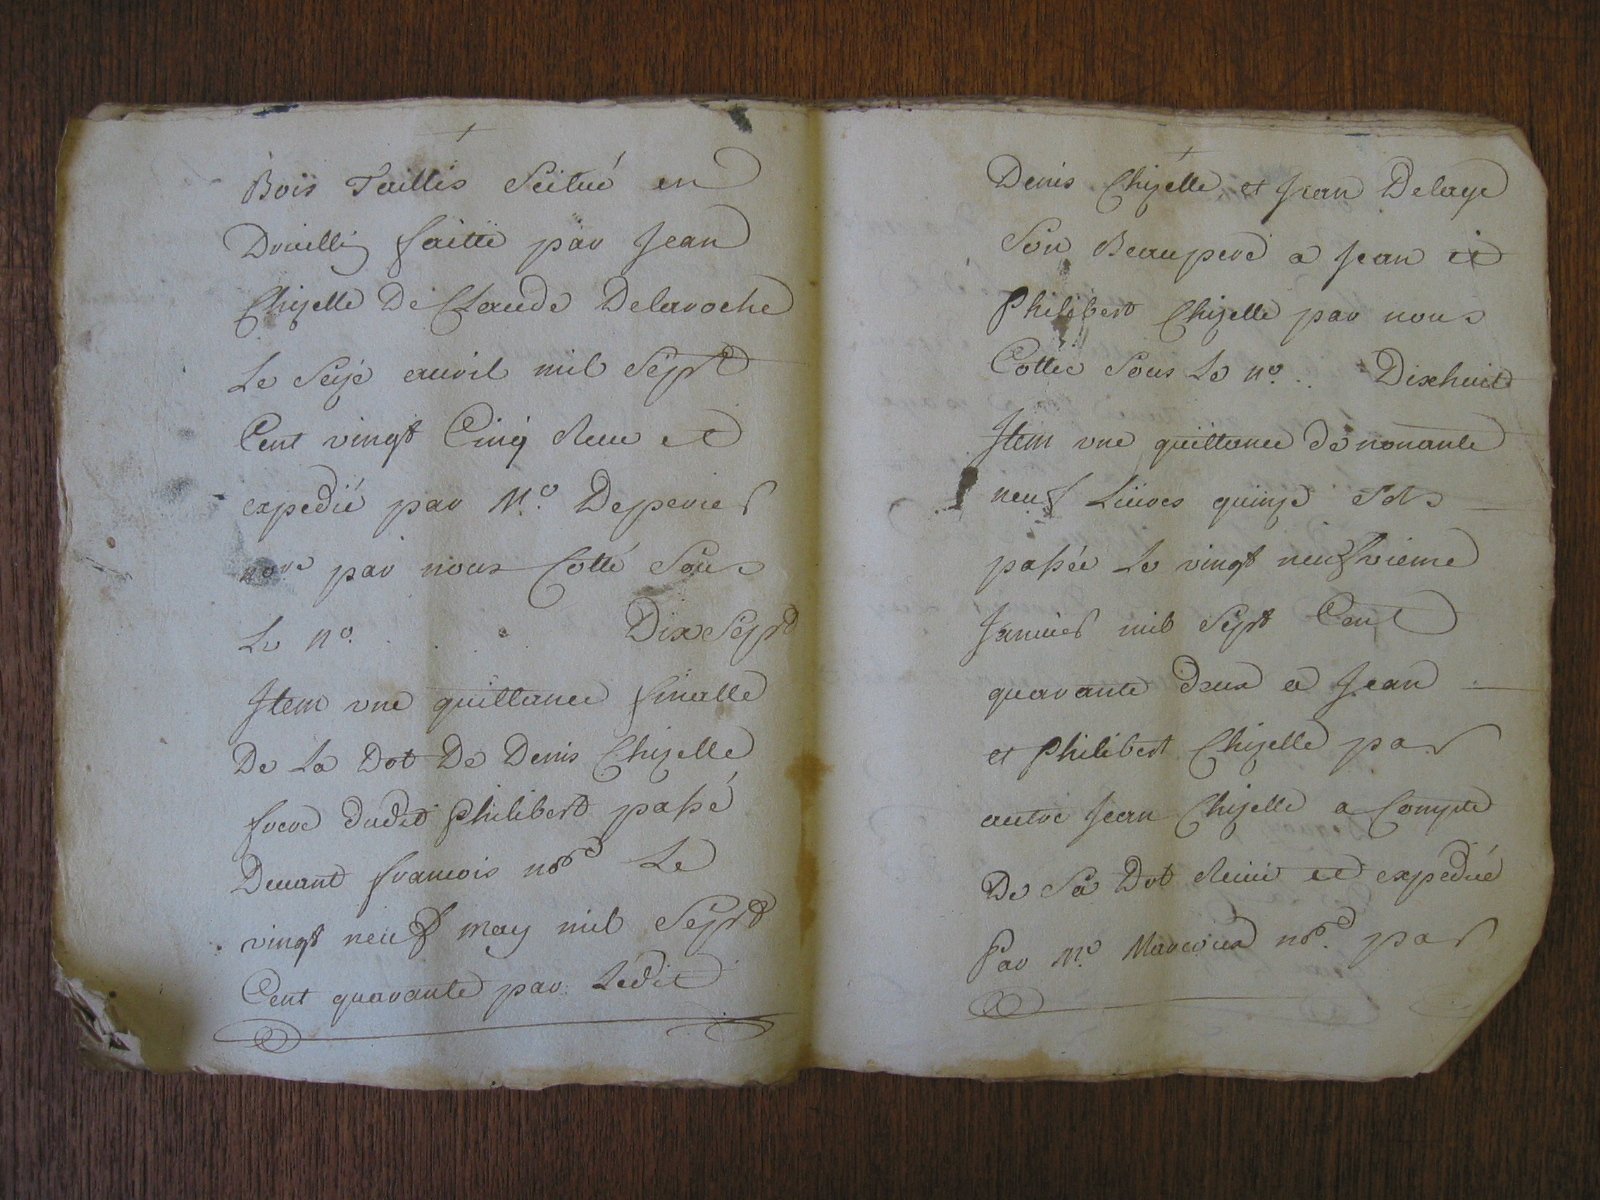 Bois Taillis Scitué en
Druilli faitte par Jean
Chizelle De Claude Delaroche
Le Seize auvril mil Sept
Cent vingt Cinq Receu et
expedié par Me. Deperier
nore par nous Cotté Sous
Le no. . . Dix Sept
Item une quittance finalle
De La Dot De Denis Chizelle
frere dudit Philibert passé
Deuant francois nore Le
vingt neuf may mil Sept
Cent quarante par Ledit
Denis Chizelle et Jean Delaye
Son Beaupere a Jean et
Philibert Chizelle par nous
Cottée Sous Le no. .. Dixhuit
Item une quittance de nonante
neuf Liüres quinze Sols
passée Le vingt neufvieme
Januier mil Sept Cent
quarante deux a Jean
et Philibert Chizelle par
autre Jean Chizelle a Compte
De Sa Dot Receüe et expediée
Par Me. nore. par